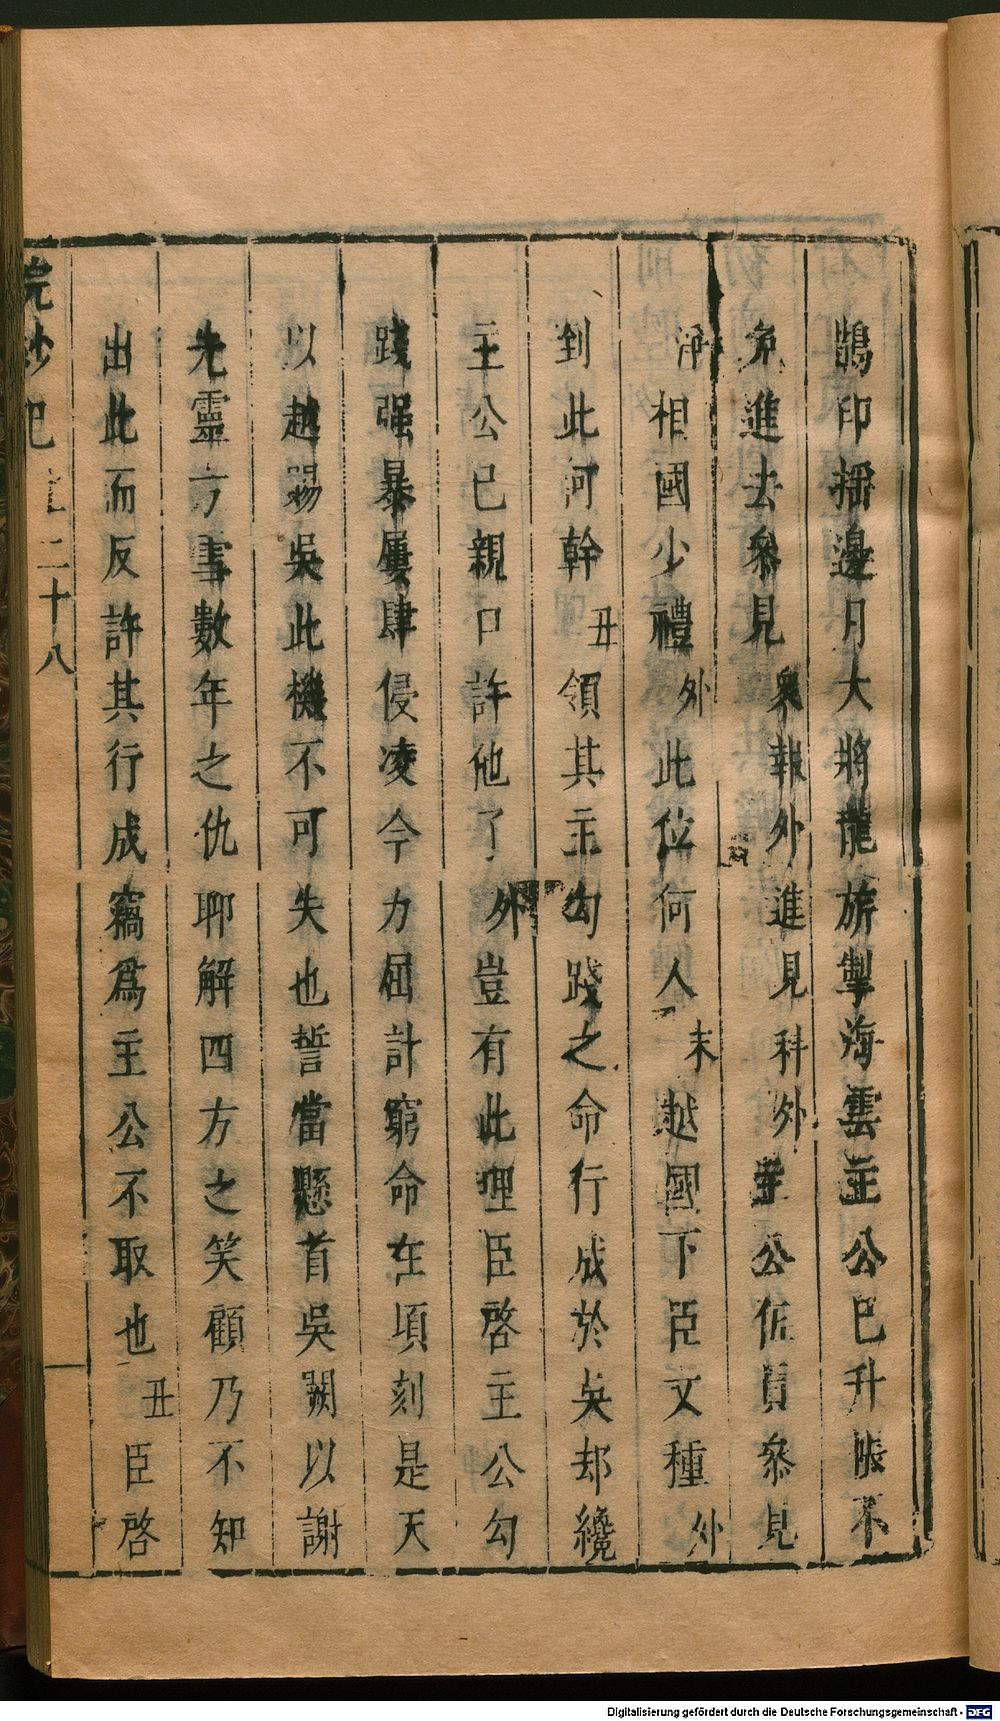 鵲印揺邊月大將龍旂掣海雲主公巳升帳不
免進去叅見衆報外進見科外主公伍員叅見
净相國少禮外此位何人末越國下臣文種外
到此何幹丑領其主勾踐之命行成於吳却纔
主公已親口許他了外豈有此理臣啓主公勾
踐强暴屢肆侵凌今力屈計窮命在頃刻是天
以越賜吳此機不可失也誓當懸首吳闕以謝
先靈方雪數年之仇聊解四方之笑顧乃不知
出此而反許其行成竊爲主公不取也丑臣啓
浣紗記 二十八
Digitalisierung gefördert durch die Deutsche Forschungsgemeinschaft - DFG